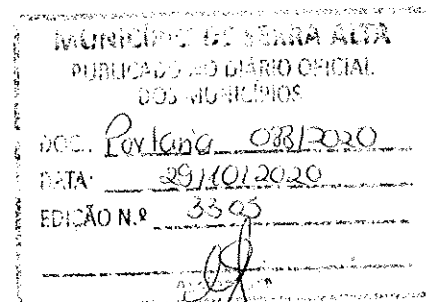 MUNICÍPIO DE SERRA ALTA
PUBLICADO NO DIÁRIO OFICIAL
DOS MUNICÍPIOS
DOC.: Portaria 088/2020
DATA: 29/10/2020
EDIÇÃO N.º 3305